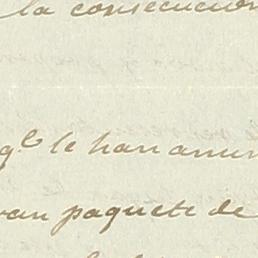 la consecucion
q.e le han anun
van paquete de